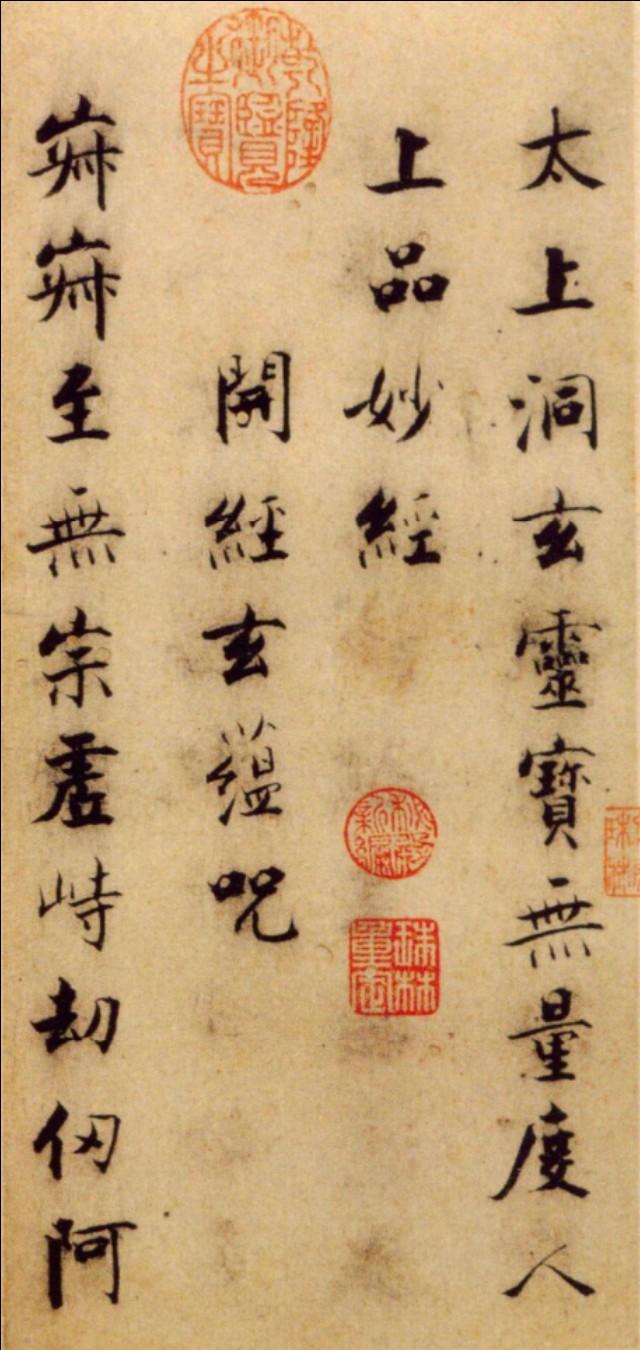 太上洞玄靈寶無量度人
上品妙經
祕殿新編
珠林重定
乾隆御覽之寶
開經玄蘊呪
寂寂至無宗虛峙劫仞阿